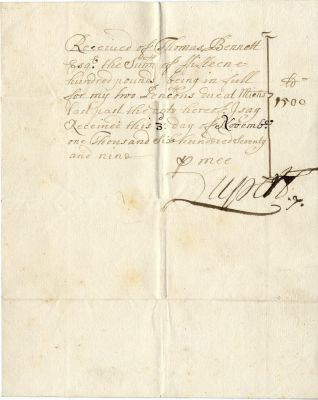 Received of Thomas Bennett
Esqr. the Sum of fifteene
hundred pounds, being in full
for my two Pencons due at Micns
last past the date hereof I say
Received this 3 day of Novembr
one Thousand Six hundred Seventy
and nine
1500
mee
Rupert